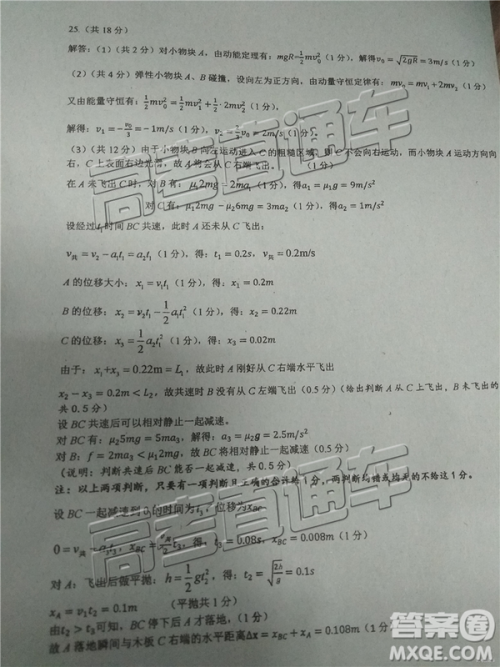 25.（共 18 分）
解答：（1）（共 2 分）对小物块 A，由动能定理有：mgR=½mv₀²（1 分），解得v₀ = √2gR = 3m/s（1 分）
（2）（共 4 分）弹性小物块 A、B 碰撞，设向左为正方向，由动量守恒定律有：mv₀ = mv₁ + 2mv₂（1 分）
又由能量守恒有：½mv₀² = ½mv₁² + ½·2mv₂²（1 分），
解得：v₁ = −v₀/3 = −1m/s（1 分），v₂ = 2m/s（1 分）。
（3）（共 12 分）由于小物块 B 向左运动进入 C 的粗糙区域，则 C 不会向右运动，而小物块 A 运动方向向
右，C 上表面右边光滑，故 A 将会从 C 右端飞出。（1 分）
在 A 未飞出 C 时，对 B 有：μ₁2mg = 2ma₁（1 分），得a₁ = μ₁g = 9m/s²
对 C 有：μ₁2mg − μ₂6mg = 3ma₂（1 分），得a₂ = 1m/s²
设经过 t₁ 时间 BC 共速，此时 A 还未从 C 飞出：
v共 = v₂ − a₁t₁ = a₂t₁（1 分），得：t₁ = 0.2s，v共 = 0.2m/s
A 的位移大小：x₁ = v₁t₁（1 分），得：x₁ = 0.2m
B 的位移：x₂ = v₂t₁ − ½a₁t₁²（1 分），得：x₂ = 0.22m
C 的位移：x₃ = ½a₂t₁²（1 分），得：x₃ = 0.02m
由于：x₁+x₃ = 0.22m = L₁，故此时 A 刚好从 C 右端水平飞出
x₂ − x₃ = 0.2m < L₂，故共速时 B 没有从 C 左端飞出（0.5 分）（给出判断 A 从 C 上飞出，B 未飞出的
共 0.5 分）
设 BC 共速后可以相对静止一起减速。
对 BC 有：μ₂5mg = 5ma₃，解得：a₃ = μ₂g = 2.5m/s²
对 B：f = 2ma₃ < μ₁2mg，故 BC 将相对静止一起减速（0.5 分）
（说明：判断共速后 BC 能否一起减速，共 0.5 分）
注：以上两项判断，只要有一项判断且正确的合计给 1 分，两判断均错或均无的不给这 1 分。
设 BC 一起减速到 0 的时间为 t₃，位移为x_BC
0 = v共 − a₃t₃，x_BC = t₃，得：t₃ = 0.08s，x_BC = 0.008m（1 分）
对 A：飞出后做平抛：h = ½gt₂²，得：t₂ = √(2h/g) = 0.1s
x_A = v₁t₂ = 0.1m （平抛共 1 分）
由t₂ > t₃可知，BC 停下后 A 才落地，（1 分）
故 A 落地瞬间与木板 C 右端的水平距离Δx = x_BC + x_A = 0.108m（1 分）
高考直通车
高考直通车
高考直通车
答案圈
MXQE.COM